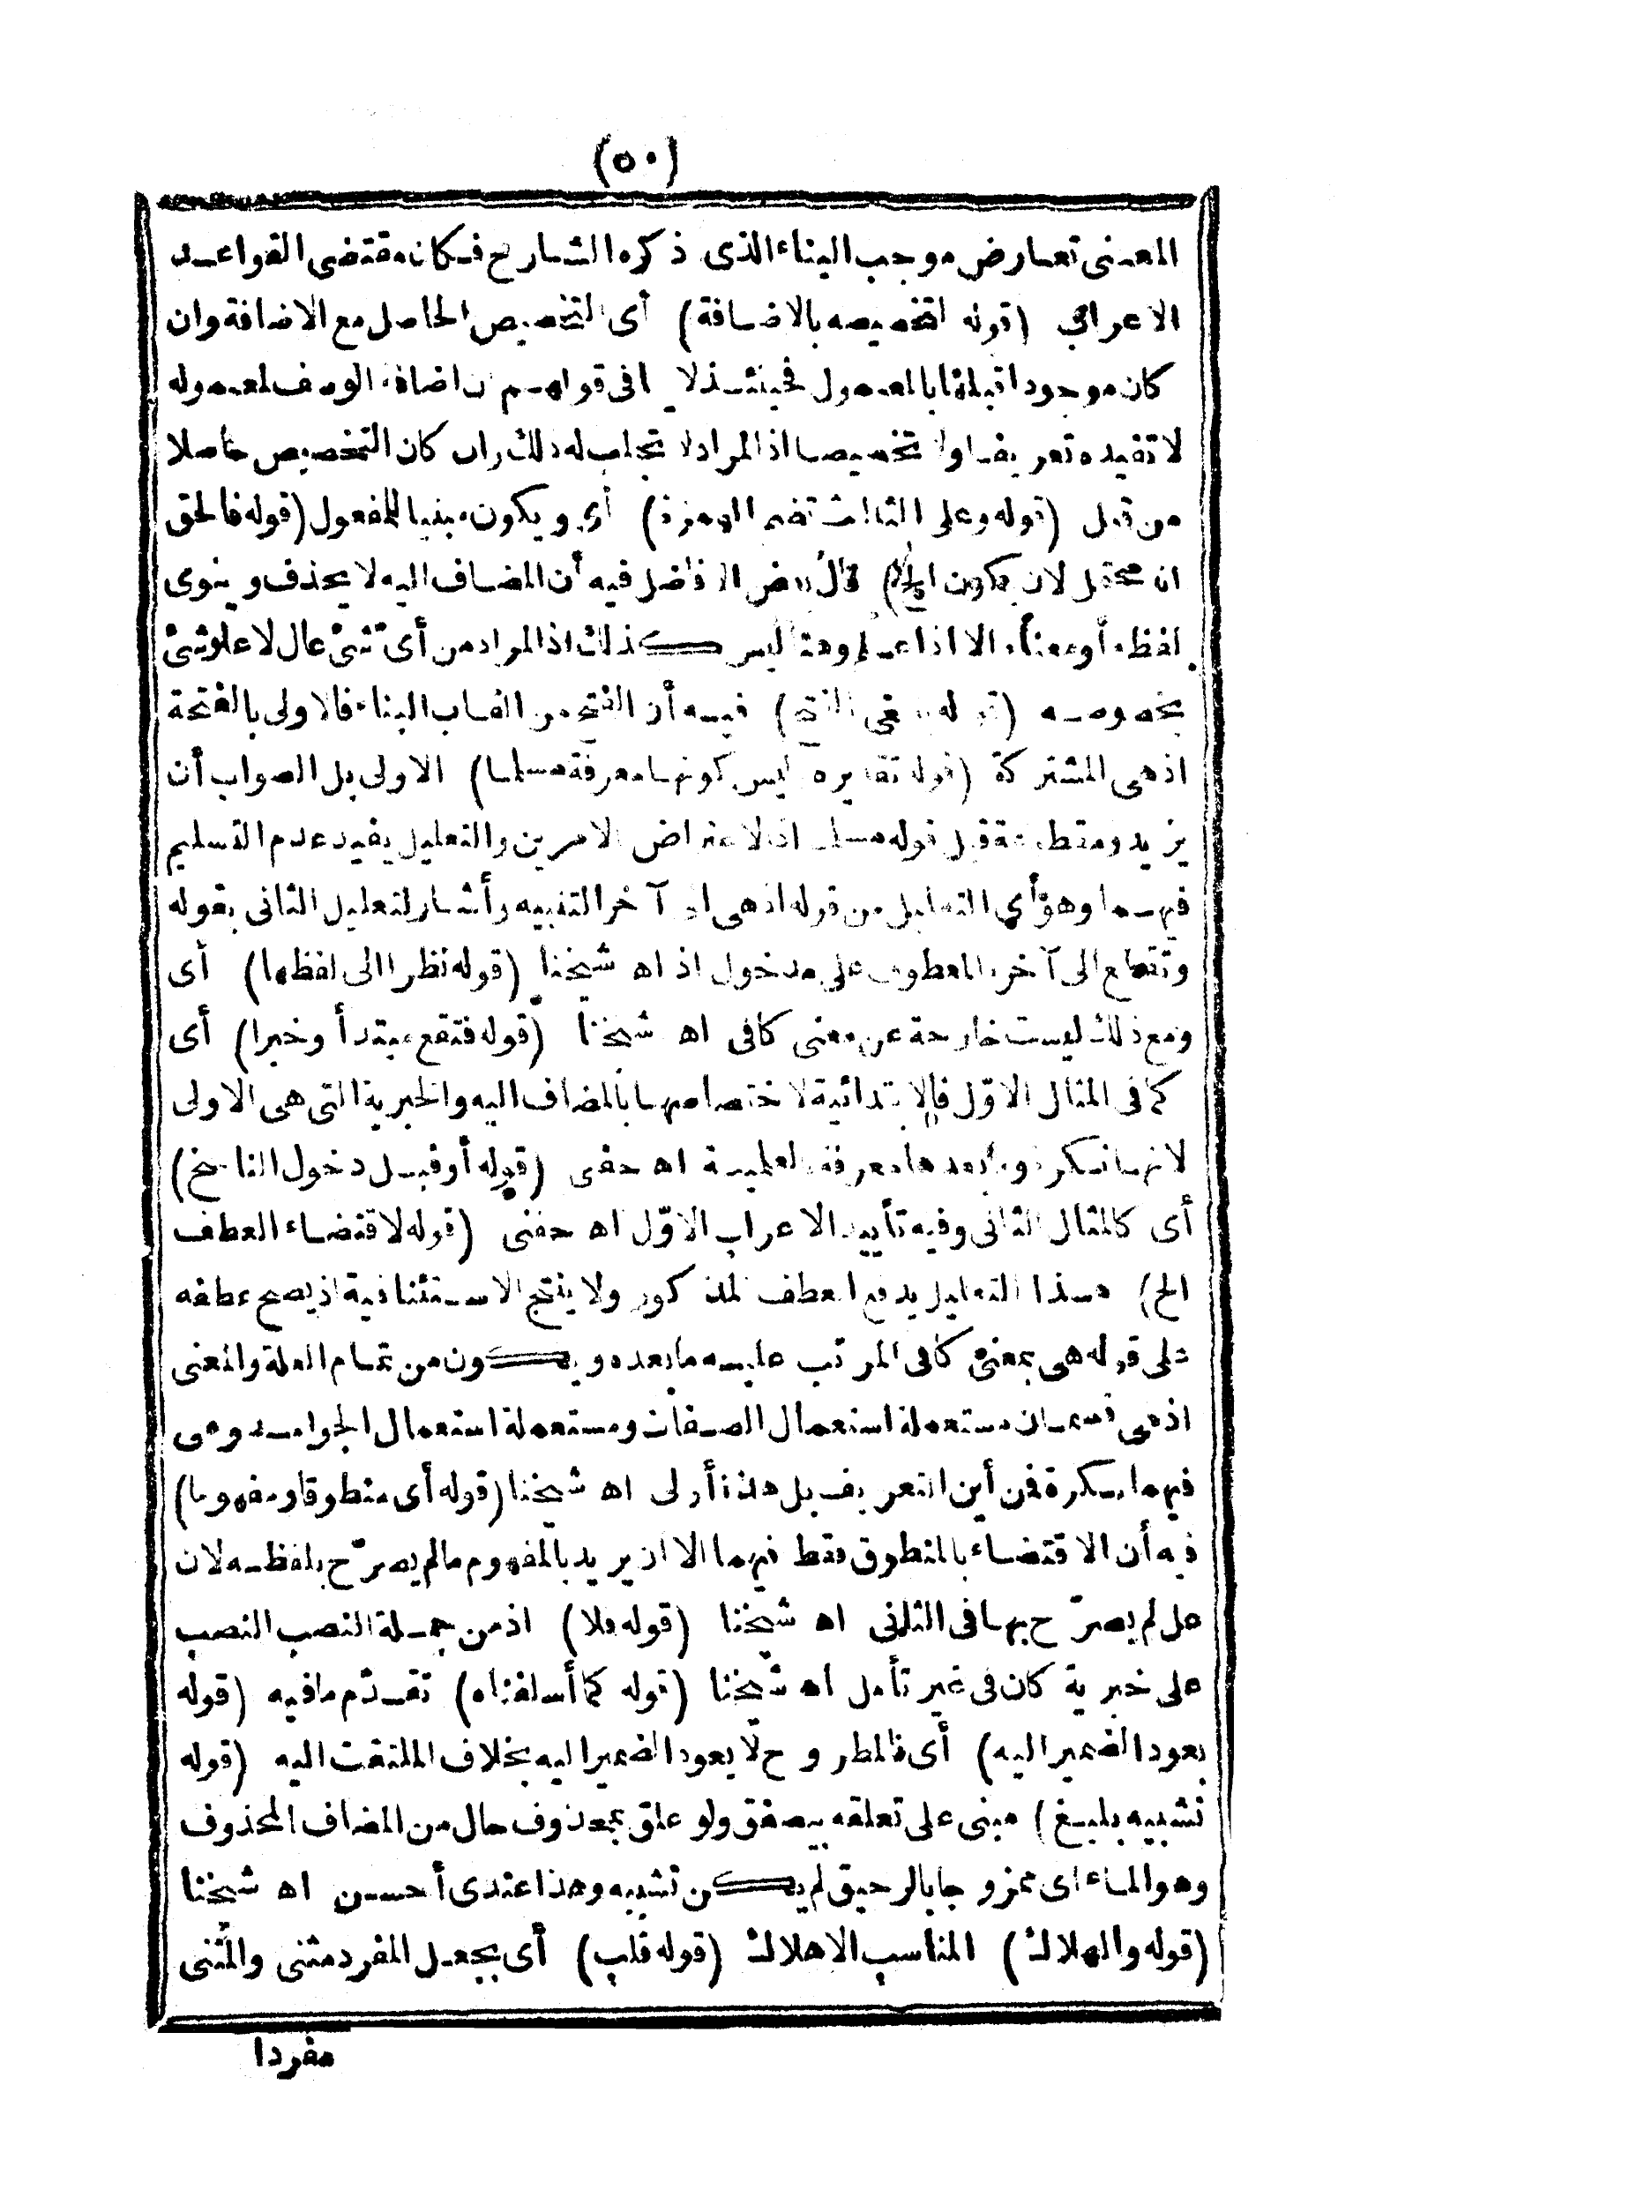 (٥٠)
المعنى تعارض موجب البناء الذى ذكره الشارح فكان مقتضى القواعد
الاعراب (قوله لتخصيصه بالاضافة) أى التخصيص الحاصل مع الاضافة وان
كان موجودا قبلها بالمعمول فحينئذ لا فى قولهم ان اضافة الوصف لمعموله
لا تفيده تعريفا ولا تخصيصا اذ المراد لا تجلب له ذلك وان كان التخصيص حاصلا
من قبل (قوله وعلى الثالث تضم الهمزة) أى ويكون مبنيا للمفعول (قوله فالحق
انه محتمل لان يكون الخ) قال بعض الافاضل فيه أن المضاف اليه لا يحذف وينوى
لفظه أو معناه الا اذا علم وهنا ليس كذلك اذ المراد من أى شئ عال لا علو شئ
بخصوصه (قوله الفتح) فيه أن الفتح من القاب البناء فالاولى بالفتحة
اذ هى المشتركة (قوله تقديره ليس كونها معرفة مسلما) الاولى بل الصواب أن
يزيد ومقطوعة قبل قوله مسلما اذ الاعتراض الامرين والتعليل يفيد عدم التسليم
فيهما وهو أى التعليل من قوله اذ هى الى آخر التنبيه وأشار لتعليل الثانى بقوله
وتقطع الى آخره المعطوف على مدخول اذ اه شيخنا (قوله نظرا الى لفظها) أى
ومع ذلك ليست خارجة عن معنى كافى اه شيخنا (قوله فتقع مبتدأ وخبرا) أى
كما فى المثال الاوّل فالابتدائية لاختصاصها بالمضاف اليه والخبرية التى هى الاولى
لانها نكرة وما بعدها معرفة بالعلمية اه حفنى (قوله أو قبل دخول الناسخ)
أى كالمثال الثانى وفيه تأييد الاعراب الاوّل اه حفنى (قوله لاقتضاء العطف
الخ) هذا التعليل يدفع العطف المذكور ولا ينتج الاستئنافية اذ يصح عطفه
على قوله هى بمعنى كافى المرتب عليه ما بعده ويكون من تمام العلة والمعنى
اذ هى قسمان مستعملة استعمال الصفات ومستعملة استعمال الجوامد وهى
فيهما نكرة فمن أين التعريف بل هذا أولى اه شيخنا (قوله أى منطوقا ومفهوما)
فيه أن الاقتضاء بالمنطوق فقط فيهما الا ان يريد بالمفهوم ما لم يصرّح بلفظه لان
عل لم يصرّح بها فى الثانى اه شيخنا (قوله علا) اذ من جملة النصب النصب
على خبرية كان فى غير تأمل اه شيخنا (قوله كما أسلفناه) تقدّم ما فيه (قوله
يعود الضمير اليه) أى فالمطر و ح لا يعود الضمير اليه بخلاف الملتفت اليه (قوله
تشبيه بليغ) مبنى على تعلقه بيصفق ولو علق بمحذوف حال من المضاف المحذوف
وهو الماء اى ممزوجا بالرحيق لم يكن تشبيه وهذا عندى أحسن اه شيخنا
(قوله والهلاك) المناسب الاهلاك (قوله قلب) أى بجعل المفرد مثنى والمثنى
مفردا